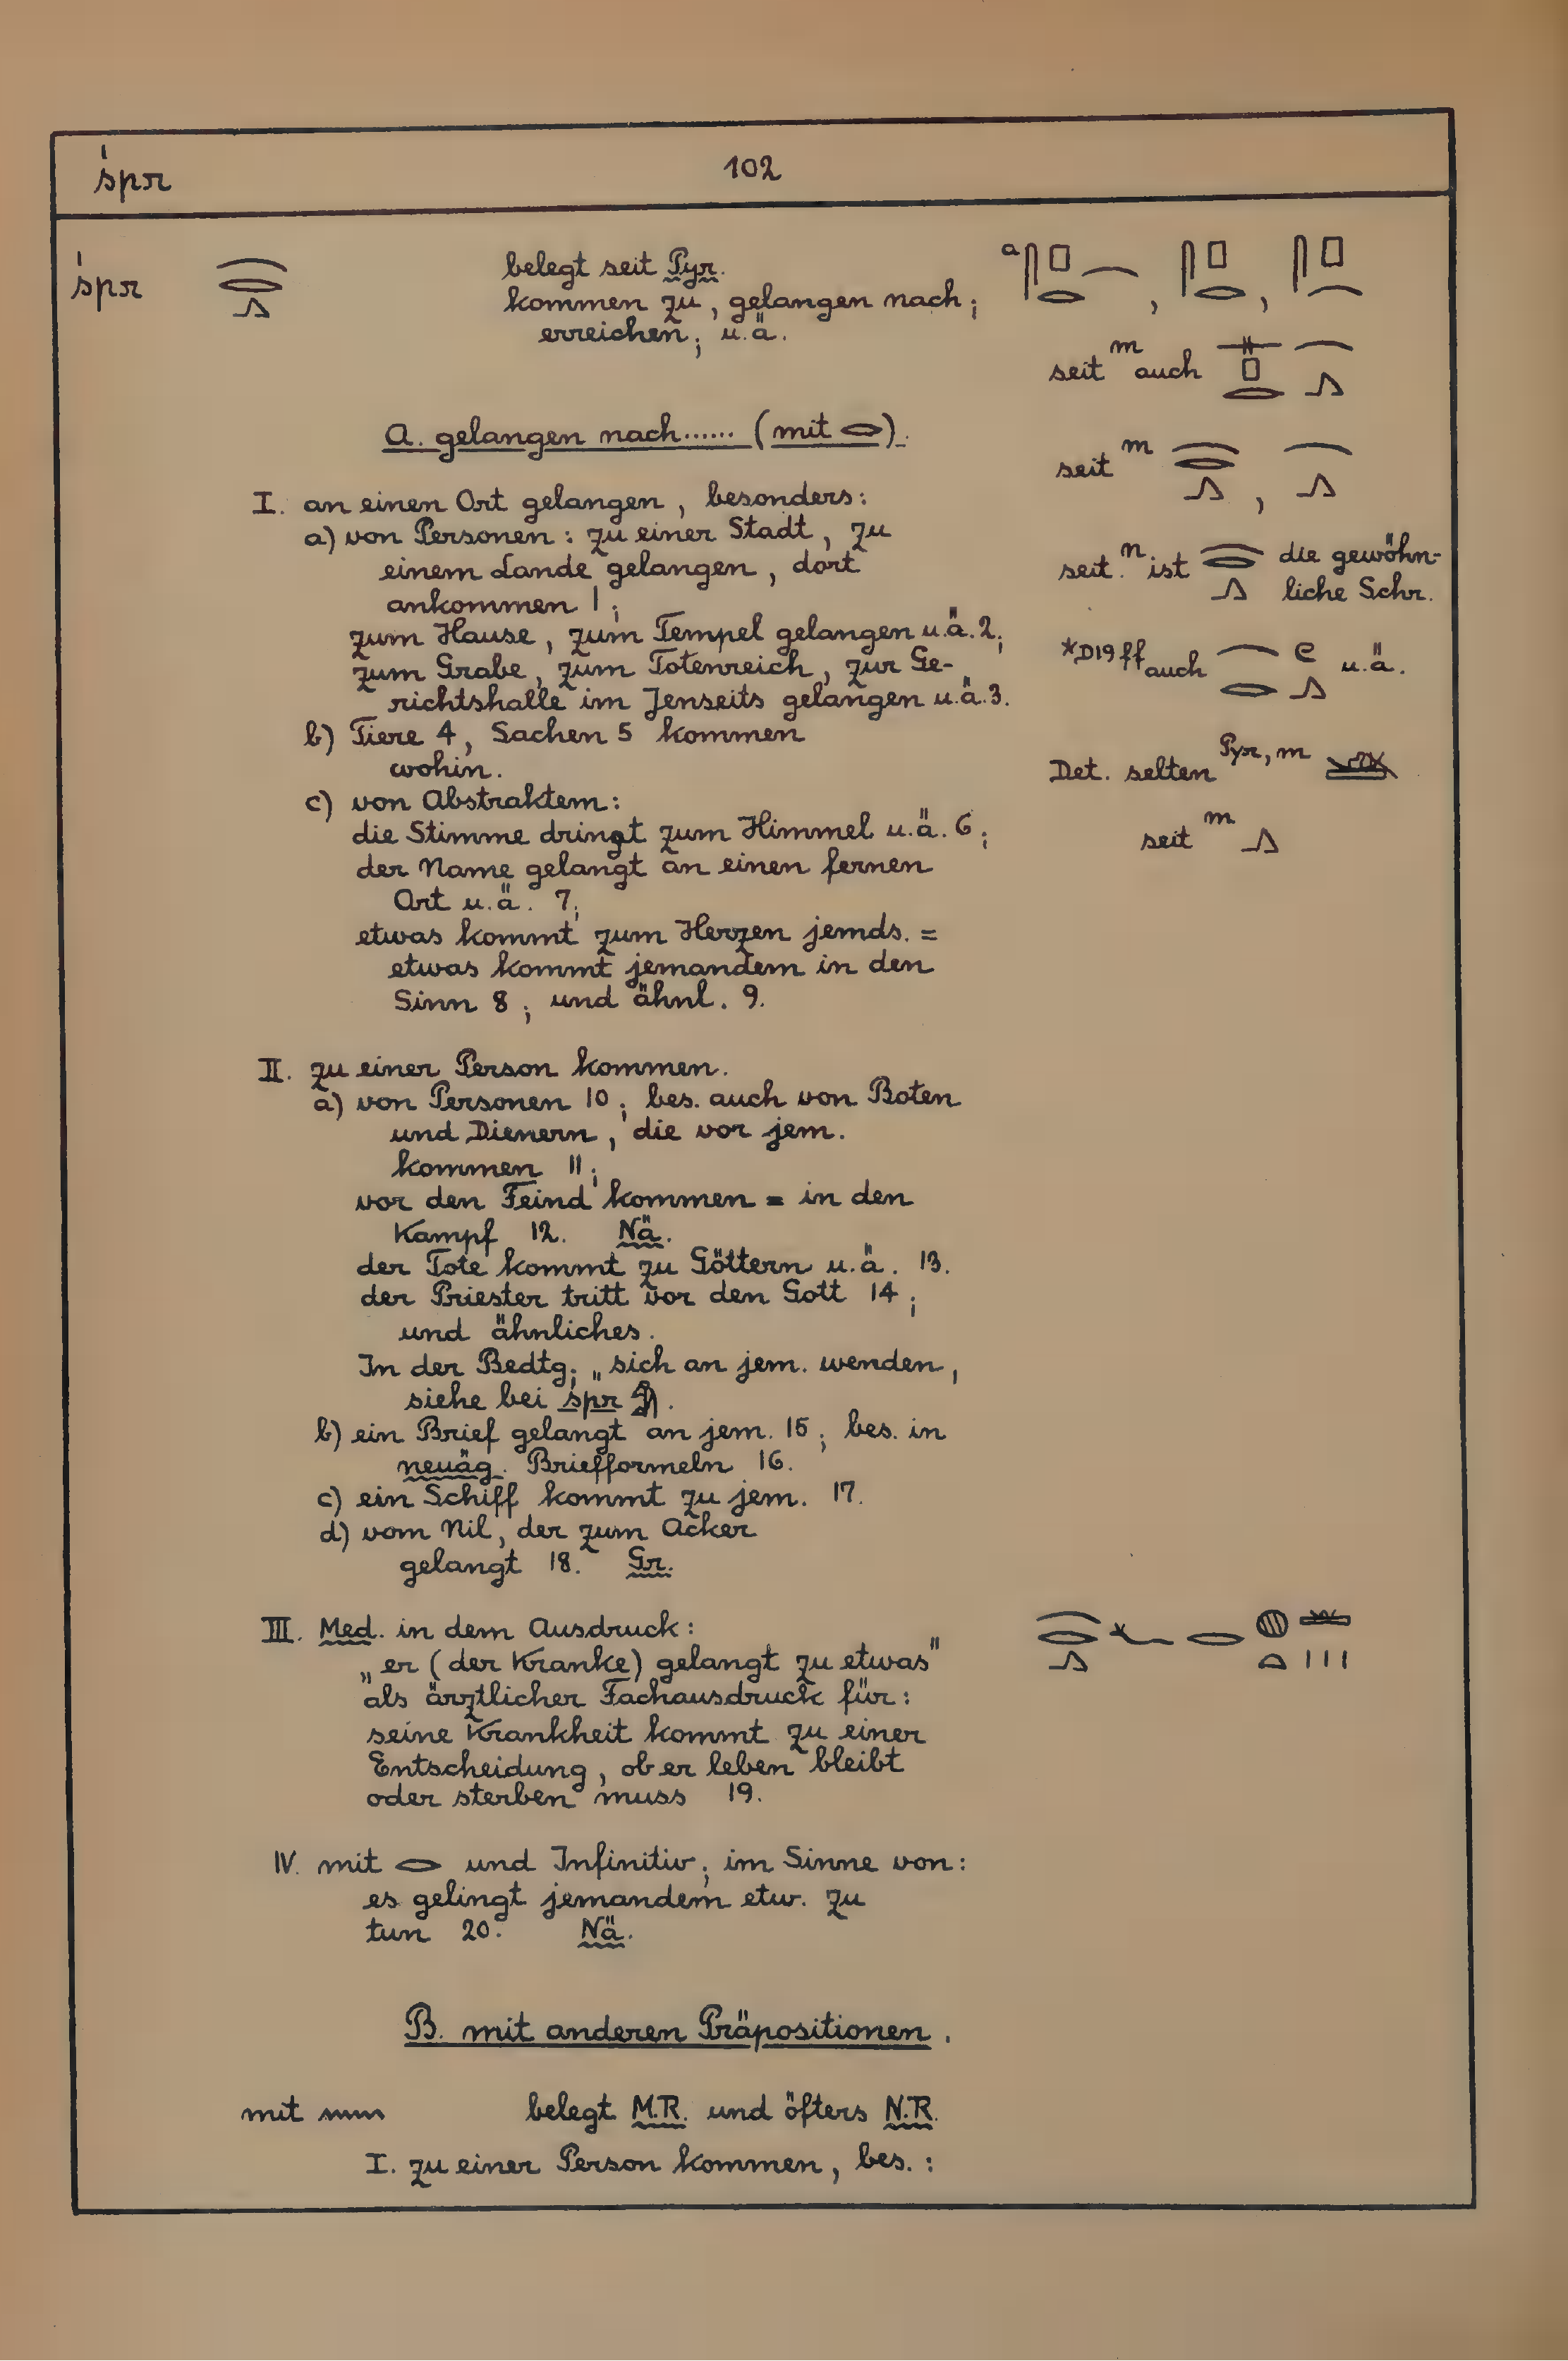 śpr 102
śpr 𓂋𓂻 belegt seit Pyr.
kommen zu, gelangen nach;
erreichen; u.ä.
a 𓋴𓊪𓂋, 𓋴𓊪𓂋, 𓋴𓊪
seit m auch 𓊃𓊪𓂋𓂻
seit m 𓂋𓂻, 𓂻
seit n ist 𓂋𓂻 die gewöhn-
liche Schr.
*D19ff auch 𓂋𓏲𓂻 u.ä.
Det. selten Pyr, m
seit m 𓂻
A. gelangen nach...... (mit 𓂋).
I. an einen Ort gelangen, besonders:
a) von Personen: zu einer Stadt, zu
einem Lande gelangen, dort
ankommen 1;
zum Hause, zum Tempel gelangen u.ä. 2;
zum Grabe, zum Totenreich, zur Ge-
richtshalle im Jenseits gelangen u.ä. 3.
b) Tiere 4, Sachen 5 kommen
wohin.
c) von Abstraktem:
die Stimme dringt zum Himmel u.ä. 6;
der Name gelangt an einen fernen
Ort u.ä. 7;
etwas kommt zum Herzen jemds. =
etwas kommt jemandem in den
Sinn 8; und ähnl. 9.
II. zu einer Person kommen.
a) von Personen 10; bes. auch von Boten
und Dienern, die vor jem.
kommen 11;
vor den Feind kommen = in den
Kampf 12. Nä.
der Tote kommt zu Göttern u.ä. 13.
der Priester tritt vor den Gott 14;
und ähnliches.
In der Bedtg; „sich an jem. wenden,
siehe bei śpr 𓀁.
b) ein Brief gelangt an jem. 15; bes. in
neuäg. Briefformeln 16.
c) ein Schiff kommt zu jem. 17.
d) vom Nil, der zum Acker
gelangt 18. Gr.
III. Med. in dem Ausdruck: 𓂋𓂻𓆑𓂋𓐍𓏏𓏛𓏥
„er (der Kranke) gelangt zu etwas"
als ärztlicher Fachausdruck für:
seine Krankheit kommt zu einer
Entscheidung, ob er leben bleibt
oder sterben muss 19.
IV. mit 𓂋 und Infinitiv; im Sinne von:
es gelingt jemandem etw. zu
tun 20. Nä.
B. mit anderen Präpositionen.
mit 𓈖 belegt M.R. und öfters N.R.
I. zu einer Person kommen, bes.: